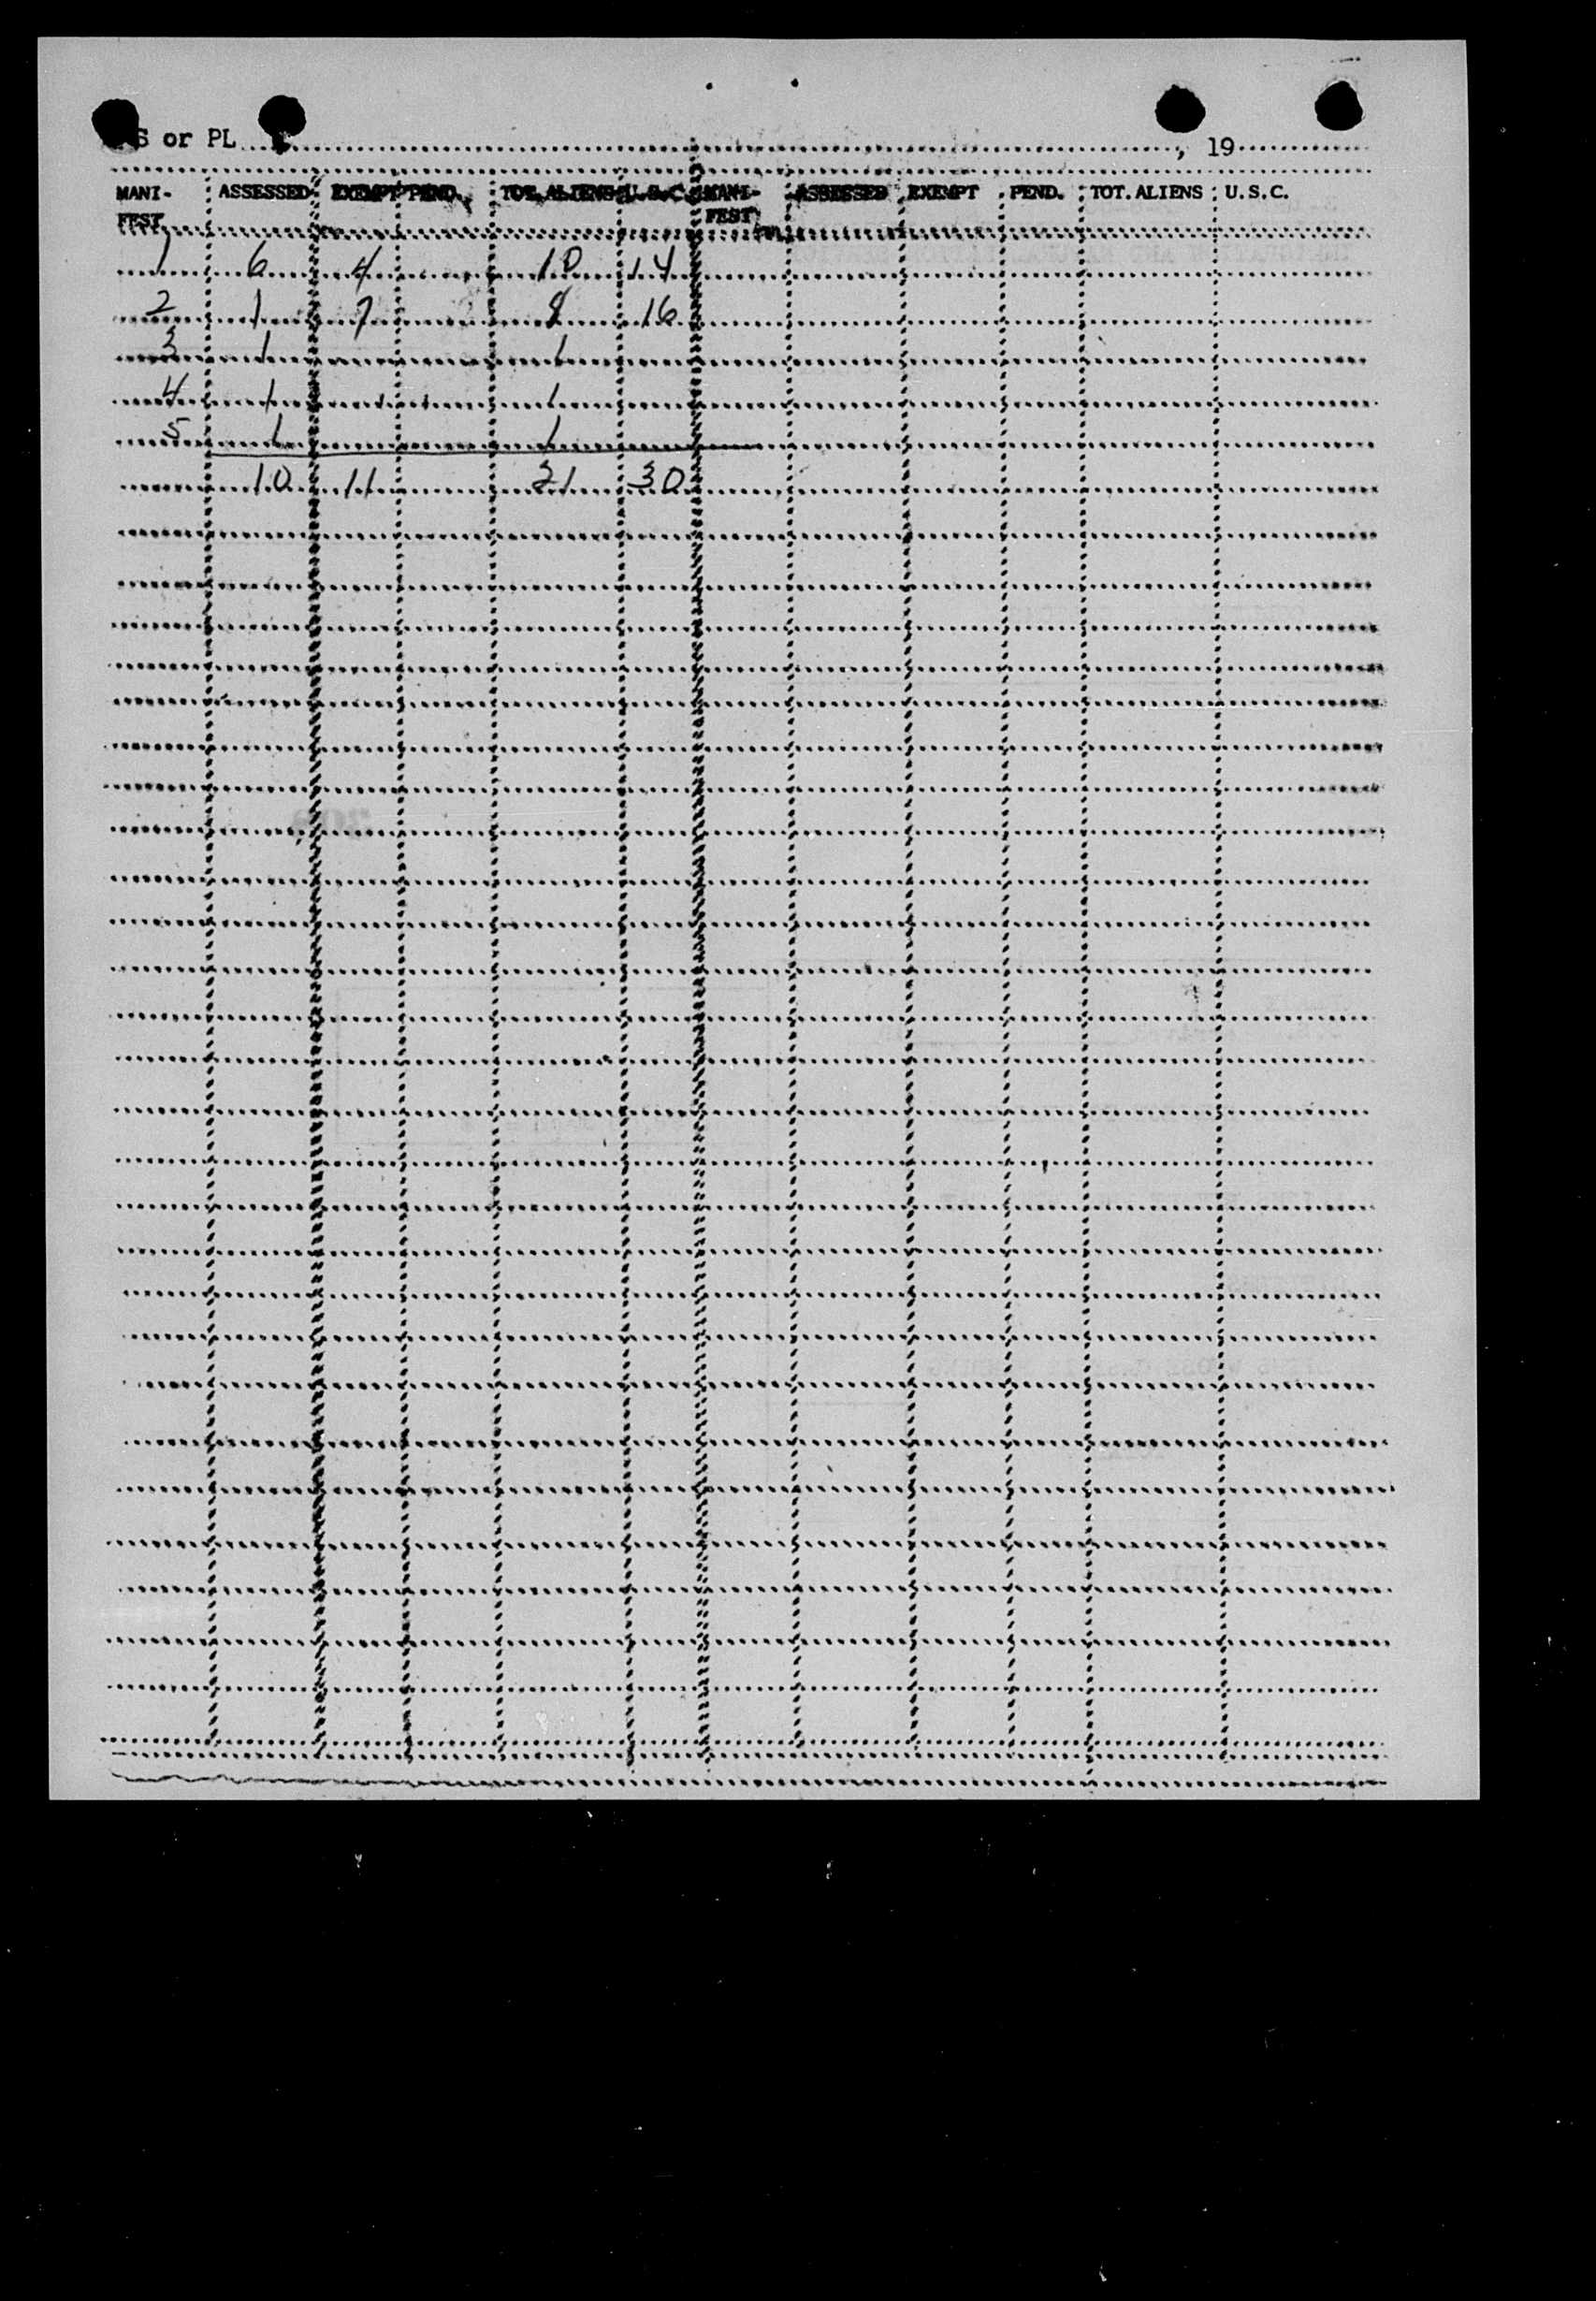 S or PL , 19
MANI- ASSESSED EXEMPT PEND. TOT. ALIENS U.S.C. MANI- ASSESSED EXEMPT PEND. TOT. ALIENS U.S.C.
FEST FEST
1 6 4 10 14
2 1 7 8 16
3 1 1
4 1 1
5 1 1
10 11 21 30